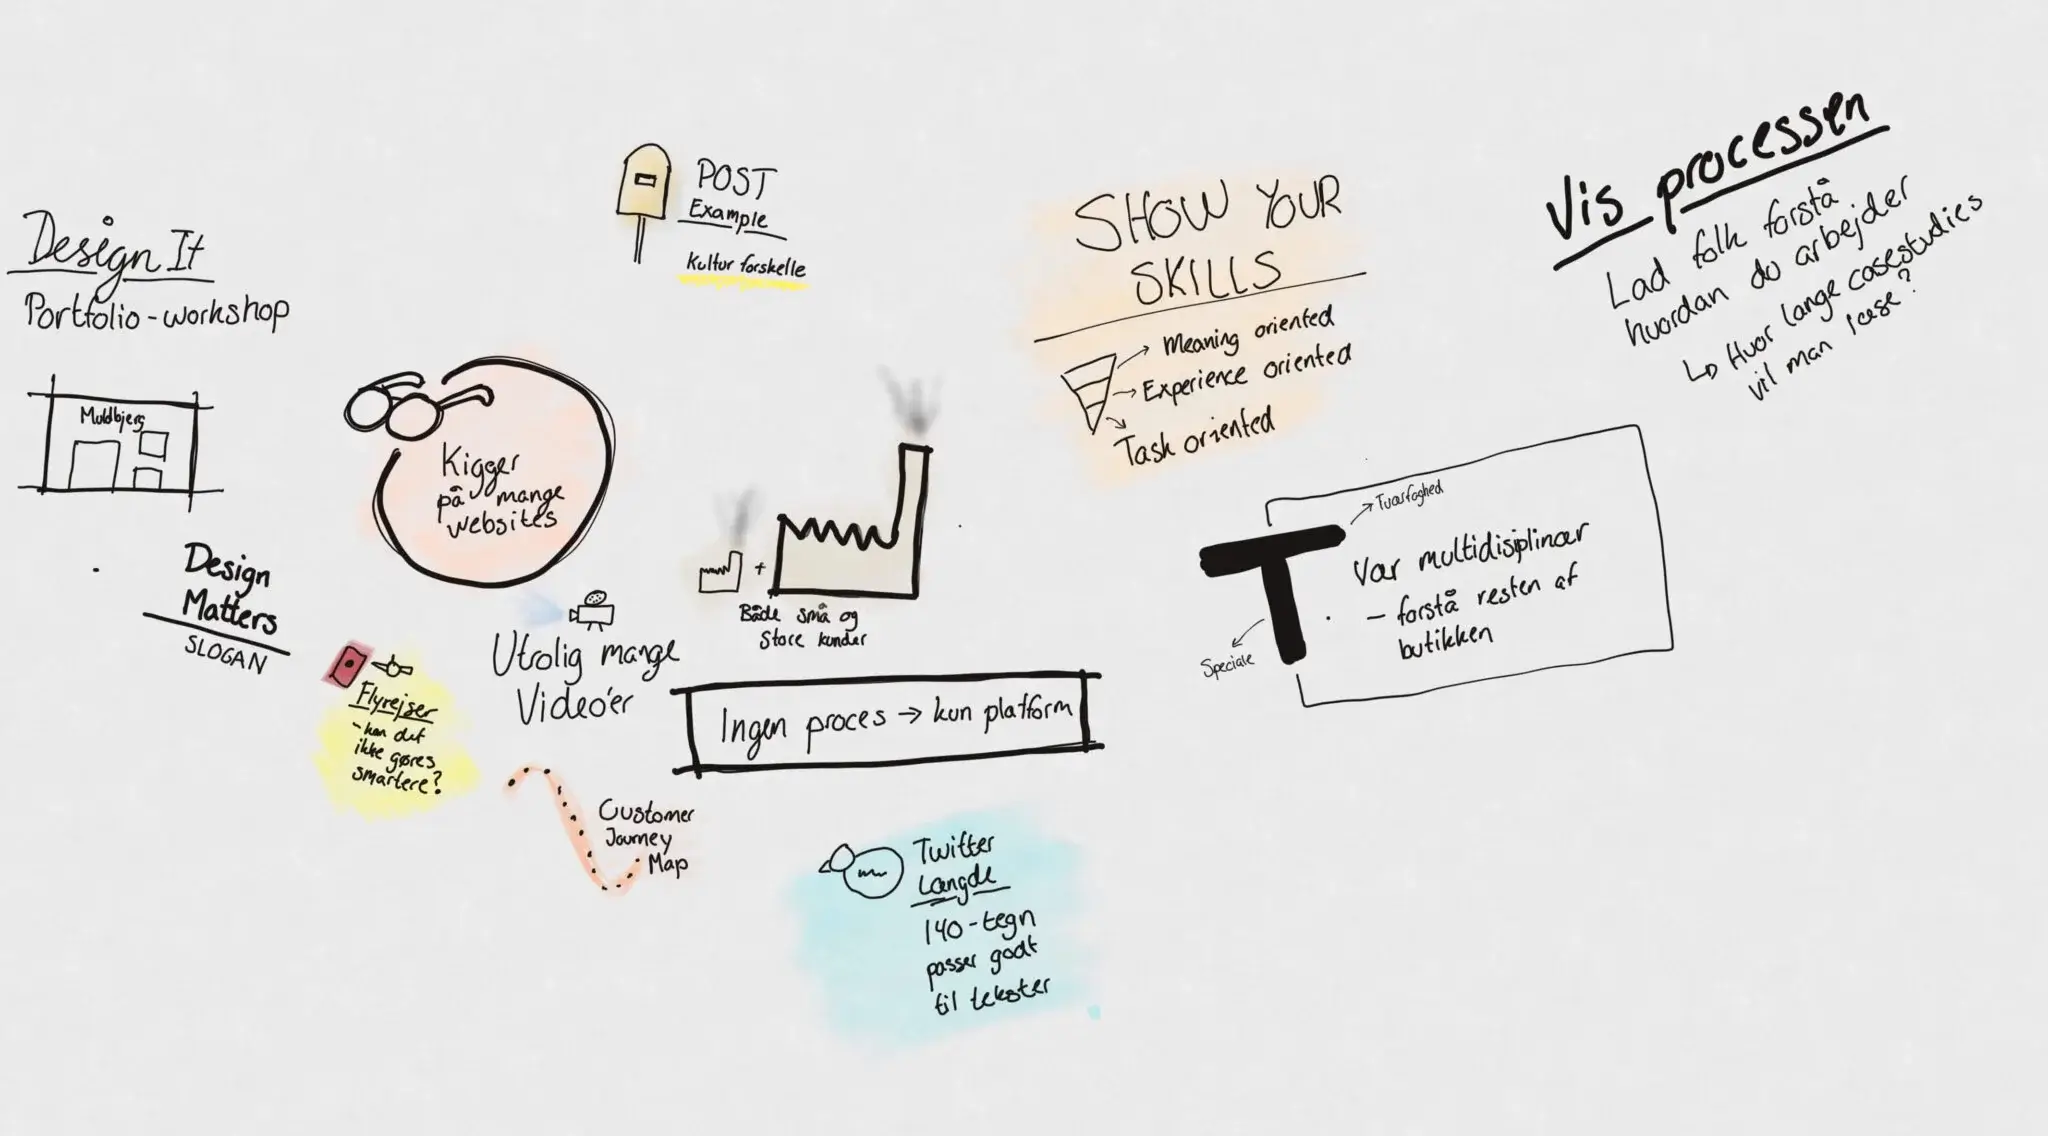 Design It
Portfolio-workshop
Muldbjerg
Design
Matters
SLOGAN
Kigger
på mange
websites
Flyrejser
- kan det
ikke gøres
smartere?
POST
Example
Kultur forskelle
Utrolig mange
Video'er
Både små og
Store kunder
Ingen proces → kun platform
Customer
Journey
Map
Twitter
Længde
140-tegn
passer godt
til tekster
SHOW YOUR
SKILLS
Meaning oriented
Experience oriented
Task oriented
T
Tværfaghed
Speciale
Vær multidisiplinær
- forstå resten af
butikken
Vis processen
Lad folk forstå
hvordan du arbejder
↳ Hvor lange casestudies
vil man læse?